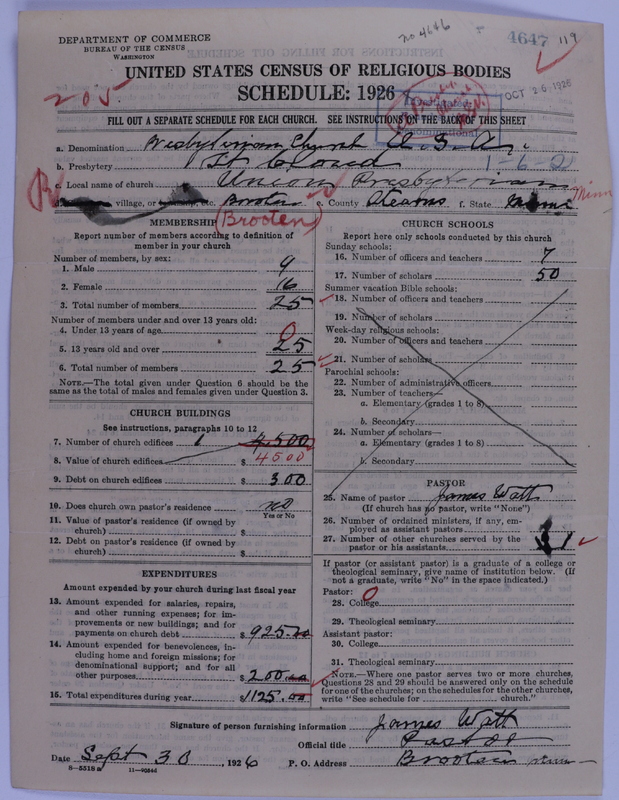 DEPARTMENT OF COMMERCE
BUREAU OF THE CENSUS
WASHINGTON
no 4646
4647 119
UNITED STATES CENSUS OF RELIGIOUS BODIES
SCHEDULE: 1926
205
OCT 26 1926
FILL OUT A SEPARATE SCHEDULE FOR EACH CHURCH. SEE INSTRUCTIONS ON THE BACK OF THIS SHEET
a. Denomination Presbyterian Church U. S. A.
b. Presbytery St Cloud 1-6-2
c. Local name of church Union Presbyterian
village, or etc. Brooten e. County Stearns f. State Minn Minn
(Brooten)
MEMBERSHIP
Report number of members according to definition of member in your church
Number of members, by sex:
1. Male 9
2. Female 16
3. Total number of members 25
Number of members under and over 13 years old:
4. Under 13 years of age 0
5. 13 years old and over 25
6. Total number of members 25
NOTE.—The total given under Question 6 should be the same as the total of males and females given under Question 3.
CHURCH BUILDINGS
See instructions, paragraphs 10 to 12
7. Number of church edifices 1 4500
8. Value of church edifices $ 4500
9. Debt on church edifices $ 300
10. Does church own pastor's residence no
Yes or No
11. Value of pastor's residence (if owned by church) $
12. Debt on pastor's residence (if owned by church) $
EXPENDITURES
Amount expended by your church during last fiscal year
13. Amount expended for salaries, repairs, and other running expenses; for improvements or new buildings; and for payments on church debt $ 925.00
14. Amount expended for benevolences, including home and foreign missions; for denominational support; and for all other purposes $ 200.00
15. Total expenditures during year $ 1125.00
CHURCH SCHOOLS
Report here only schools conducted by this church
Sunday schools:
16. Number of officers and teachers 7
17. Number of scholars 50
Summer vacation Bible schools:
18. Number of officers and teachers
19. Number of scholars
Week-day religious schools:
20. Number of officers and teachers
21. Number of scholars
Parochial schools:
22. Number of administrative officers
23. Number of teachers—
a. Elementary (grades 1 to 8)
b. Secondary
24. Number of scholars—
a. Elementary (grades 1 to 8)
b. Secondary
PASTOR
25. Name of pastor James Watt
(If church has no pastor, write "None")
26. Number of ordained ministers, if any, employed as assistant pastors
27. Number of other churches served by the pastor or his assistants 1
If pastor (or assistant pastor) is a graduate of a college or theological seminary, give name of institution below. (If not a graduate, write "No" in the space indicated.)
Pastor: 0
28. College
29. Theological seminary
Assistant pastor:
30. College
31. Theological seminary
NOTE.—Where one pastor serves two or more churches, Questions 28 and 29 should be answered only on the schedule for one of the churches; on the schedules for the other churches, write "See schedule for church."
Signature of person furnishing information James Watt
Official title Pastor
Date Sept 30, 1926 P. O. Address Brooten Minn
8—5518a 11—9064d